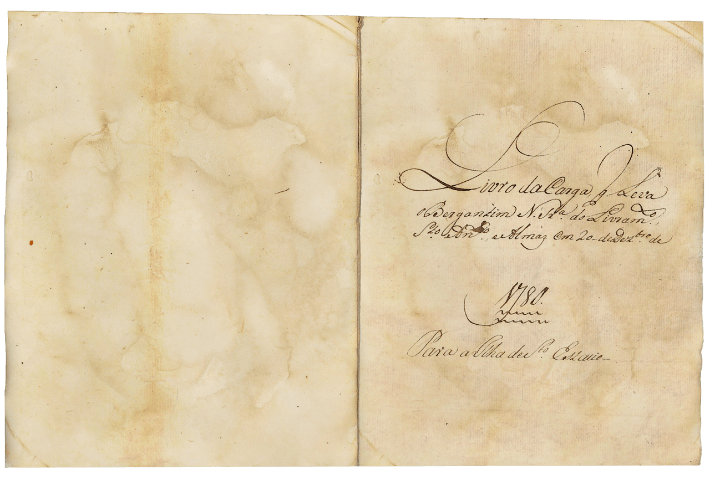 Livro da Carga q Leva
o Bergantim N. Sra. do Livramto.
Sto. e Almaz em 20 de Dezbro de
1780.
Para a Ilha de Sto.